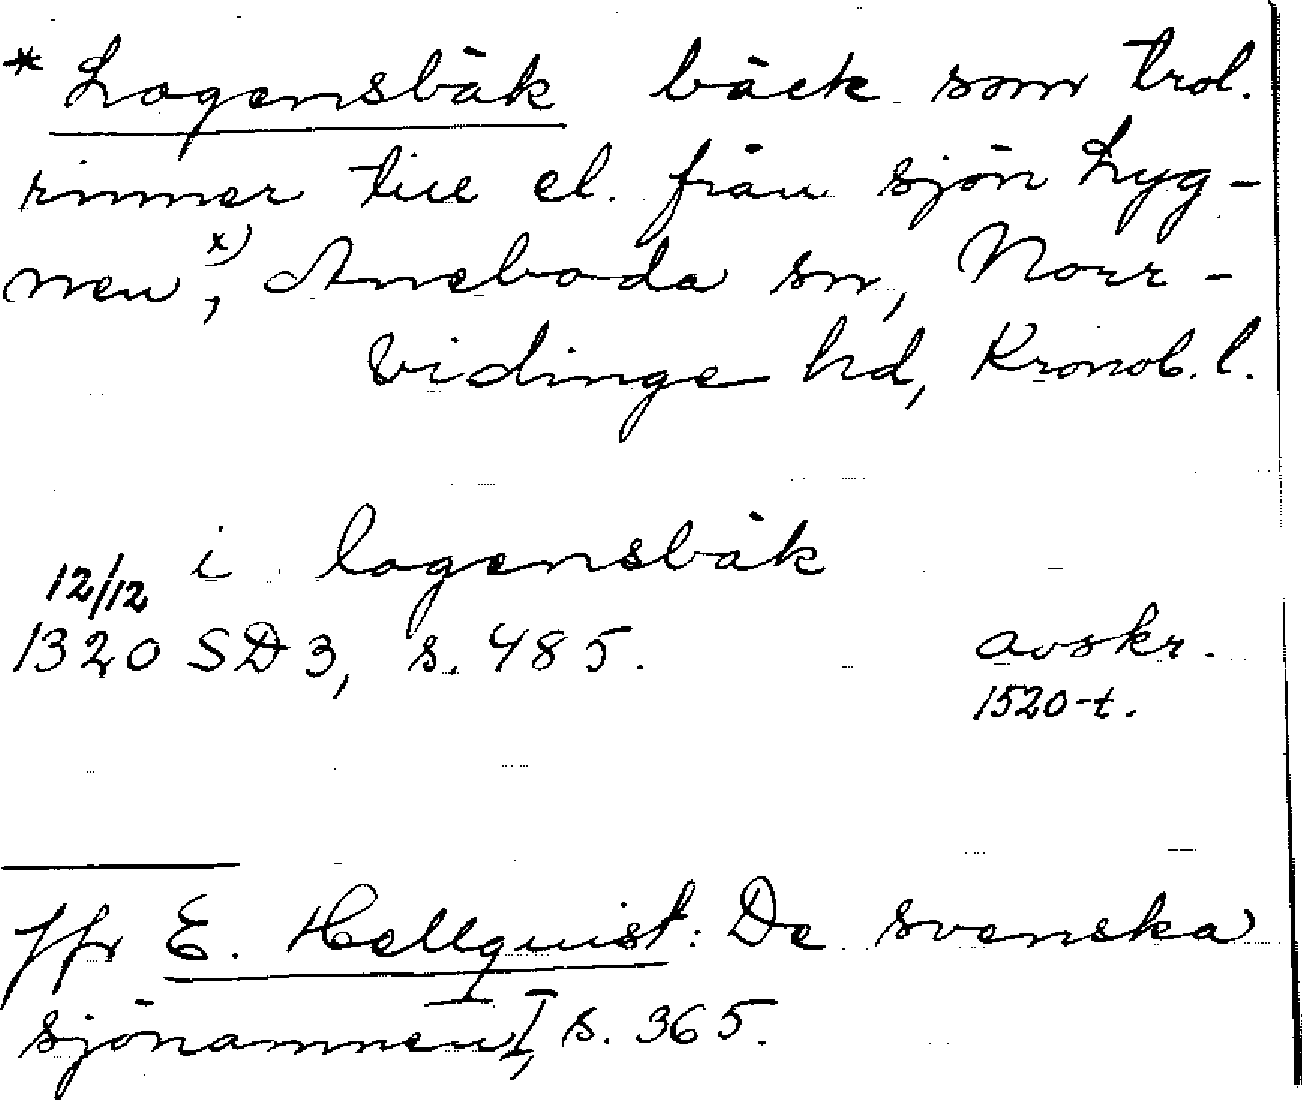 * Lagensbäk bäck som trol.
rinner till el. från sjön Lyg-
nen x), Aneboda sn, Norr-
vidinge hd, Kronob. l.
i lagensbäk
12/12
1320 SD 3, s. 485. avskr.
1520-t.
Jfr E. Hellquist: De svenska
sjönamnen I, s. 365.